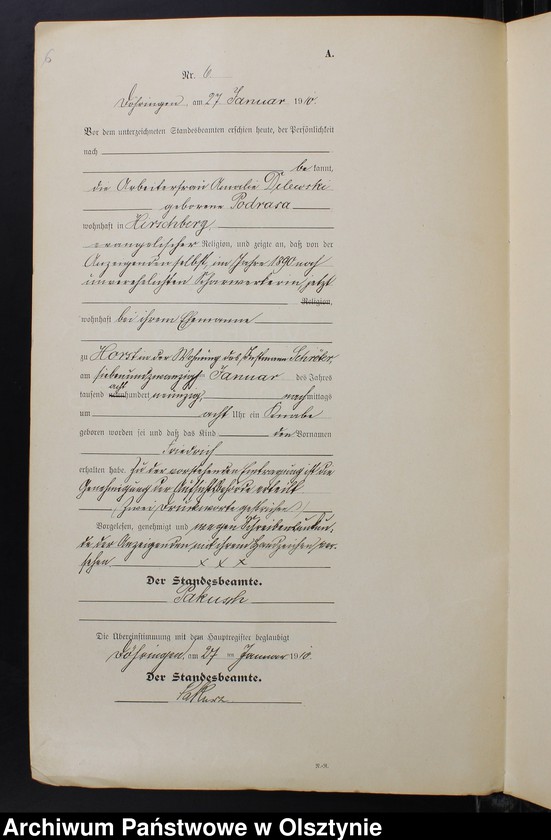 6
A.
Nr. 6
Döhringen, am 27 Januar 1910.
Vor dem unterzeichneten Standesbeamten erschien heute, der Persönlichkeit
nach
bekannt,
die Arbeiterfrau Amalie Dilewski
geborene Podrasa
wohnhaft in Hirschberg
evangelischer Religion, und zeigte an, daß von der
Anzeigenden selbst, im Jahre 1890 noch
unverehelichten Scharwerkerin, jetzt
Religion,
wohnhaft bei ihrem Ehemanne
zu Horst in der Wohnung des Instmann Schröter
am siebenundzwanzigsten Januar des Jahres
tausend acht hundert neunzig, nachmittags
um acht Uhr ein Knabe
geboren worden sei und daß das Kind den Vornamen
Friedrich
erhalten habe. Zu der vorstehenden Eintragung ist die
Genehmigung der Aufsichtsbehörde erteilt
(Zwei Druckworte gestrichen)
Vorgelesen, genehmigt und wegen Schreibensunkun-
de der Anzeigenden mit ihrem Handzeichen ver-
sehen x x x
Der Standesbeamte.
Pakusch
Die Übereinstimmung mit dem Hauptregister beglaubigt
Döhringen, am 27 ten Januar 1910.
Der Standesbeamte.
Archiwum Państwowe w Olsztynie